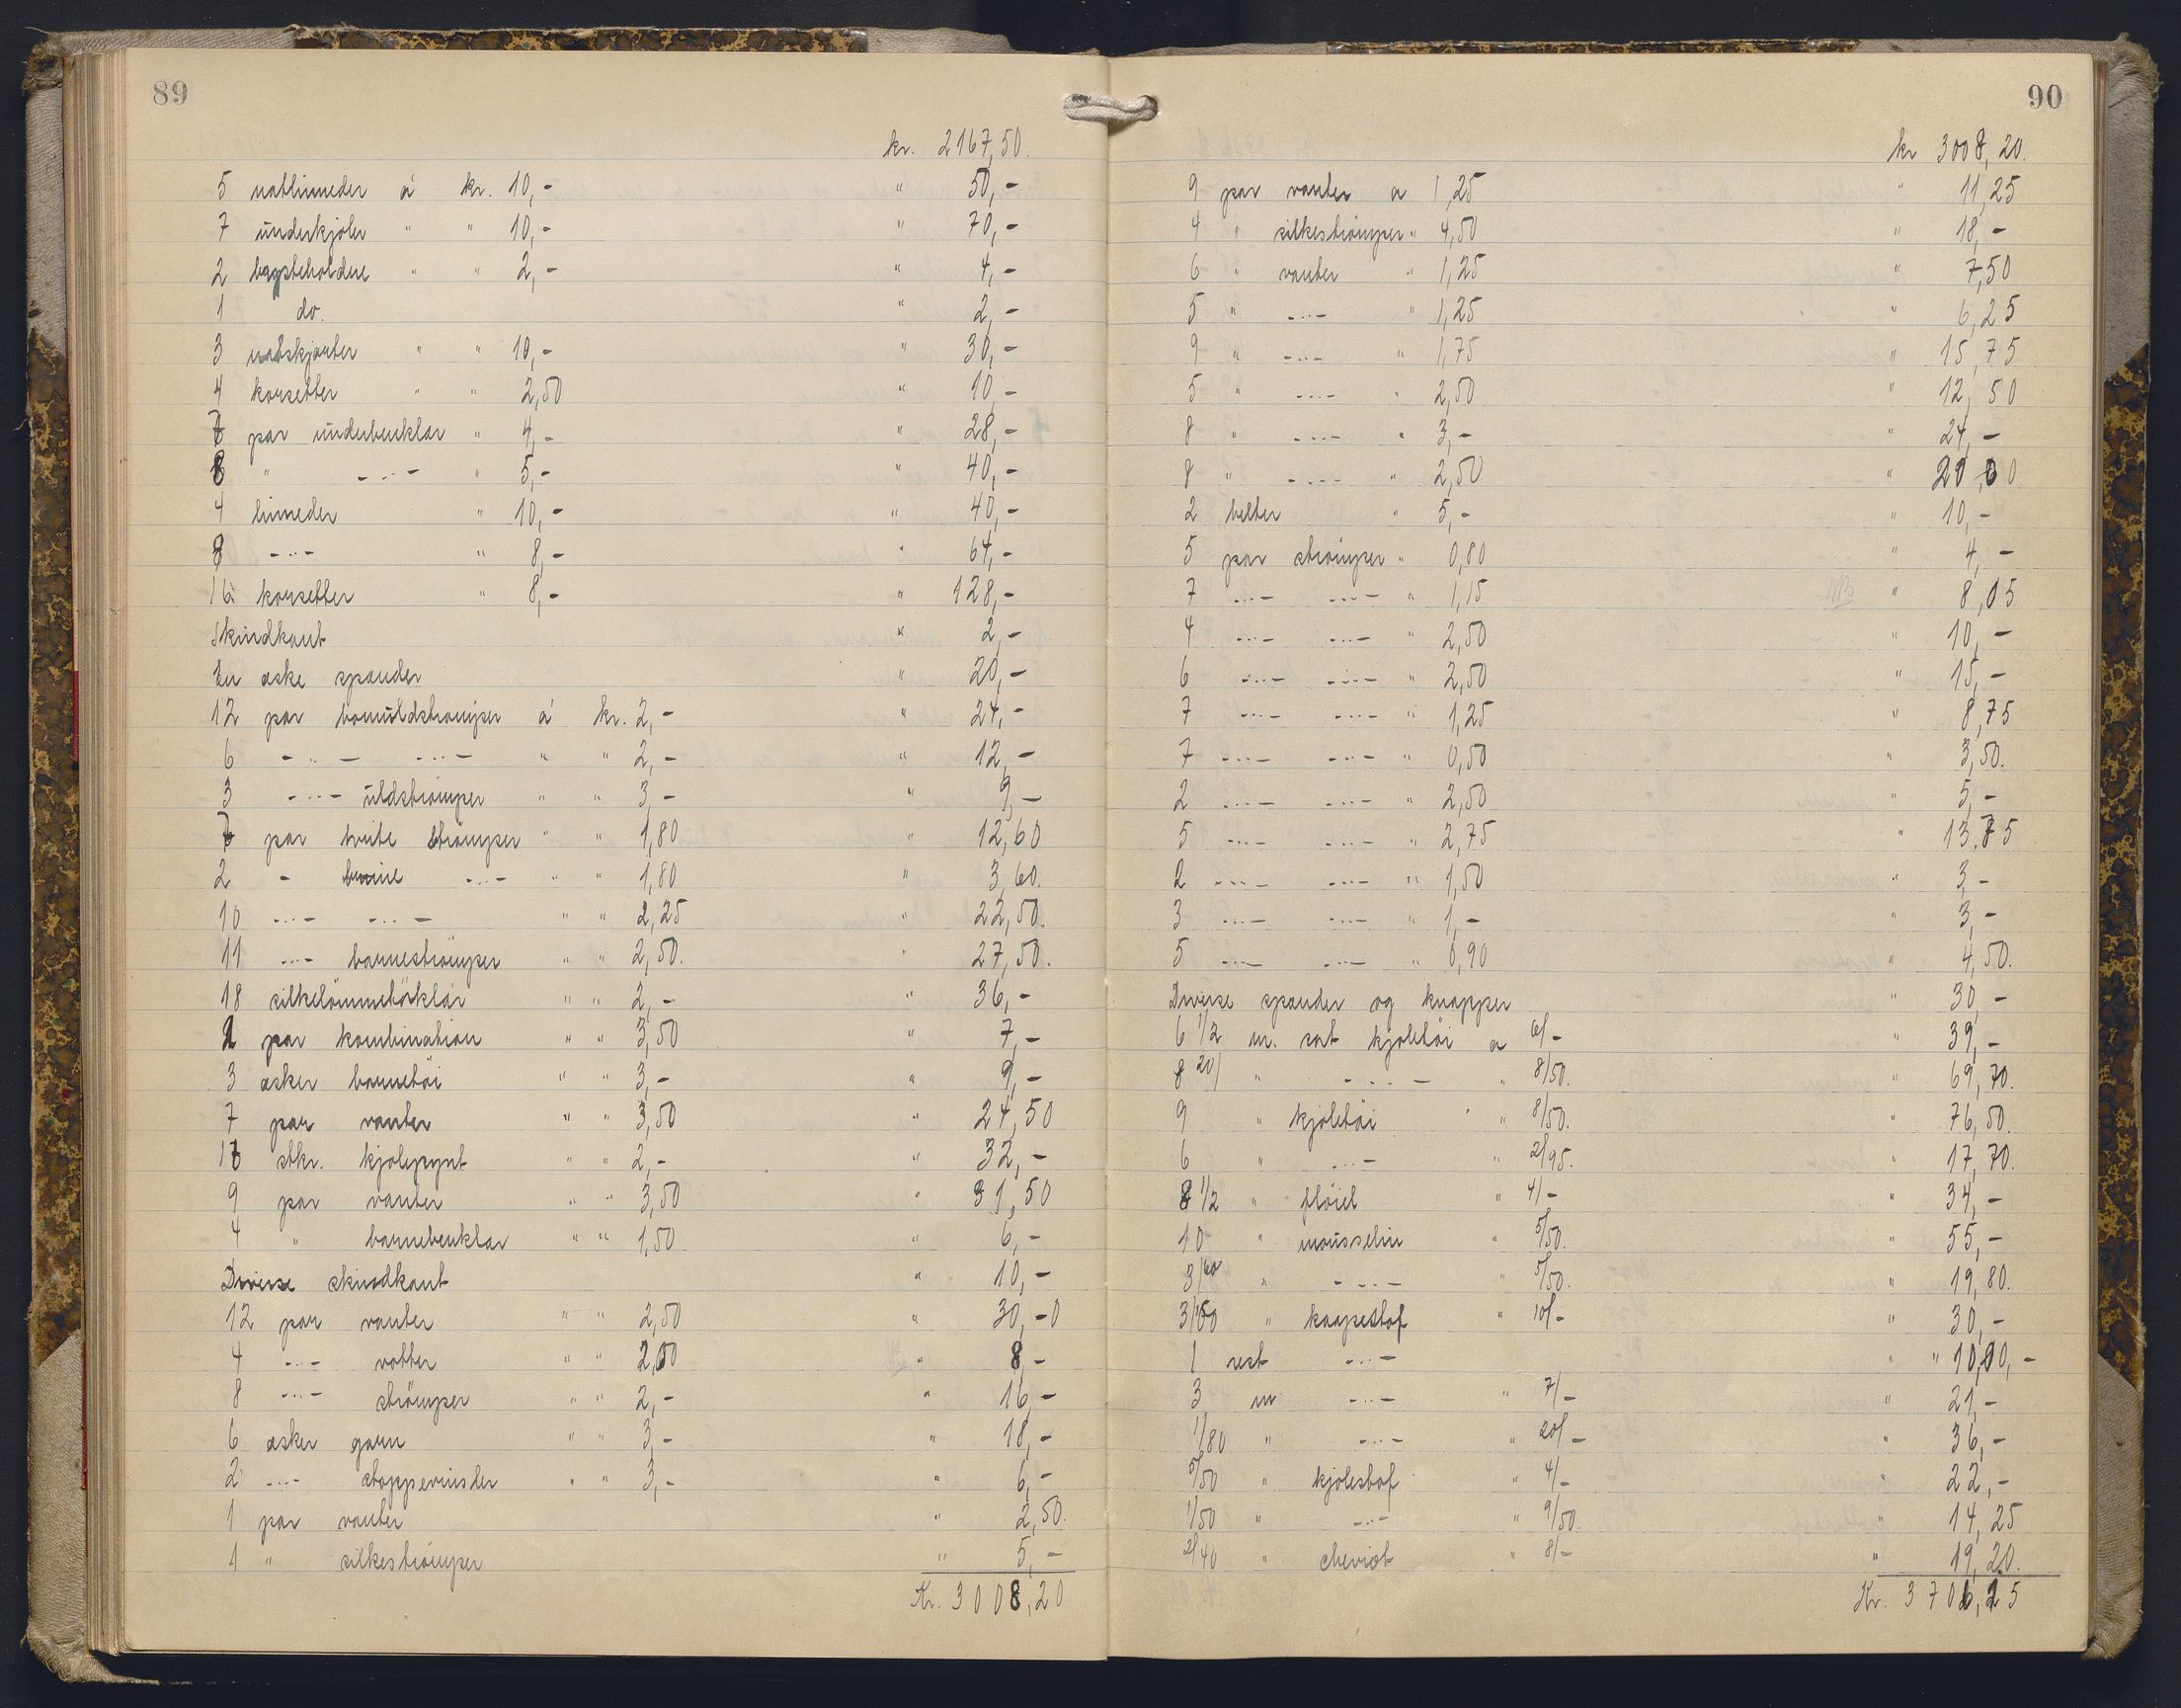 89
kr. 2167,50.
5 natlinneder á kr. 10,- " 50,-
7 underkjoler " " 10,- " 70,-
2 bysteholdere " " 2,- " 4,-
1 do. " 2,-
3 natskjorter " " 10,- " 30,-
4 korsetter " " 2,50 " 10,-
7 par underbenklær " 4,- " 28,-
8 " -..- " 5,- " 40,-
4 linneder " 10,- " 40,-
8 -..- " 8,- " 64,-
16 korsetter " 8,- " 128,-
Skindkant " 2,-
En æske spænder " 20,-
12 par bomuldstrømper á kr. 2,- " 24,-
6 -..- -..- " " 2,- " 12,-
3 -..- uldstrømper " " 3,- " 9,-
7 par hvite strømper " " 1,80 " 12,60
2 - brune -..- " " 1,80 " 3,60.
10 -..- -..- " " 2,25 " 22,50.
11 -..- barnestrømper " " 2,50. " 27,50.
18 silkelommetørklær " " 2,- " 36,-
2 par kombination " " 3,50 " 7,-
3 æsker barnetøi " " 3,- " 9,-
7 par vanter " " 3,50 " 24,50
16 stkr. kjolepynt " " 2,- " 32,-
9 par vanter " " 3,50 " 31,50
4 " barnebenklær " " 1,50 " 6,-
Diverse skindkant " 10,-
12 par vanter " " 2,50 " 30,-0
4 -..- votter " " 2,00 " 8,-
8 -..- strømper " " 2,- " 16,-
6 æsker garn " " 3,- " 18,-
2 -..- " " 3,- " 6,-
1 par vanter " 2,50.
1 " silkestrømper " 5,-
Kr. 3008,20
90
kr 3008,20.
9 par vanter a 1,25 " 11,25
4 " silkestrømper " 4,50 " 18,-
6 " vanter " 1,25 " 7,50
5 " -..- " 1,25 " 6,25
9 " -..- " 1,75 " 15,75
5 " -..- " 2,50 " 12,50
8 " -..- " 3,- " 24,-
8 " -..- " 2,50 " 20,00
2 belter " 5,- " 10,-
5 par strømper " 0,80 " 4,-
7 -..- -..- " 1,15 " 8,05
4 -..- -..- " 2,50 " 10,-
6 -..- -..- " 2,50 " 15,-
7 -..- -..- " 1,25 " 8,75
7 -..- -..- " 0,50 " 3,50.
2 -..- -..- " 2,50 " 5,-
5 -..- -..- " 2,75 " 13.75
2 -..- -..- " 1,50 " 3,-
3 -..- -..- " 1,- " 3,-
5 -..- -..- " 0,90 " 4,50.
Diverse spænder og knapper " 30,-
6 1/2 m. sort kjoletøi a 6/- " 39,-
8 20/ " -..- " 8/50. " 69,70.
9 " kjoletøi " 8/50. " 76,50.
6 " -..- " 2/95. " 17,70.
8 1/2 " fløiel " 4/- " 34,-
10 " mousselin " 5/50. " 55,-
3/60 " -..- " 5/50. " 19,80.
3/00 " kaapestof " 10/- " 30,-
1 rest -..- " " 10,00,-
3 m -..- " 7/- " 21,-
1/80 " -..- " 20/- " 36,-
5/50 " kjolestof " 4/- " 22,-
1/50 " -..- " 9/50. " 14,25
2/40 " cheviot " 8/- " 19,20.
Kr. 3706,25